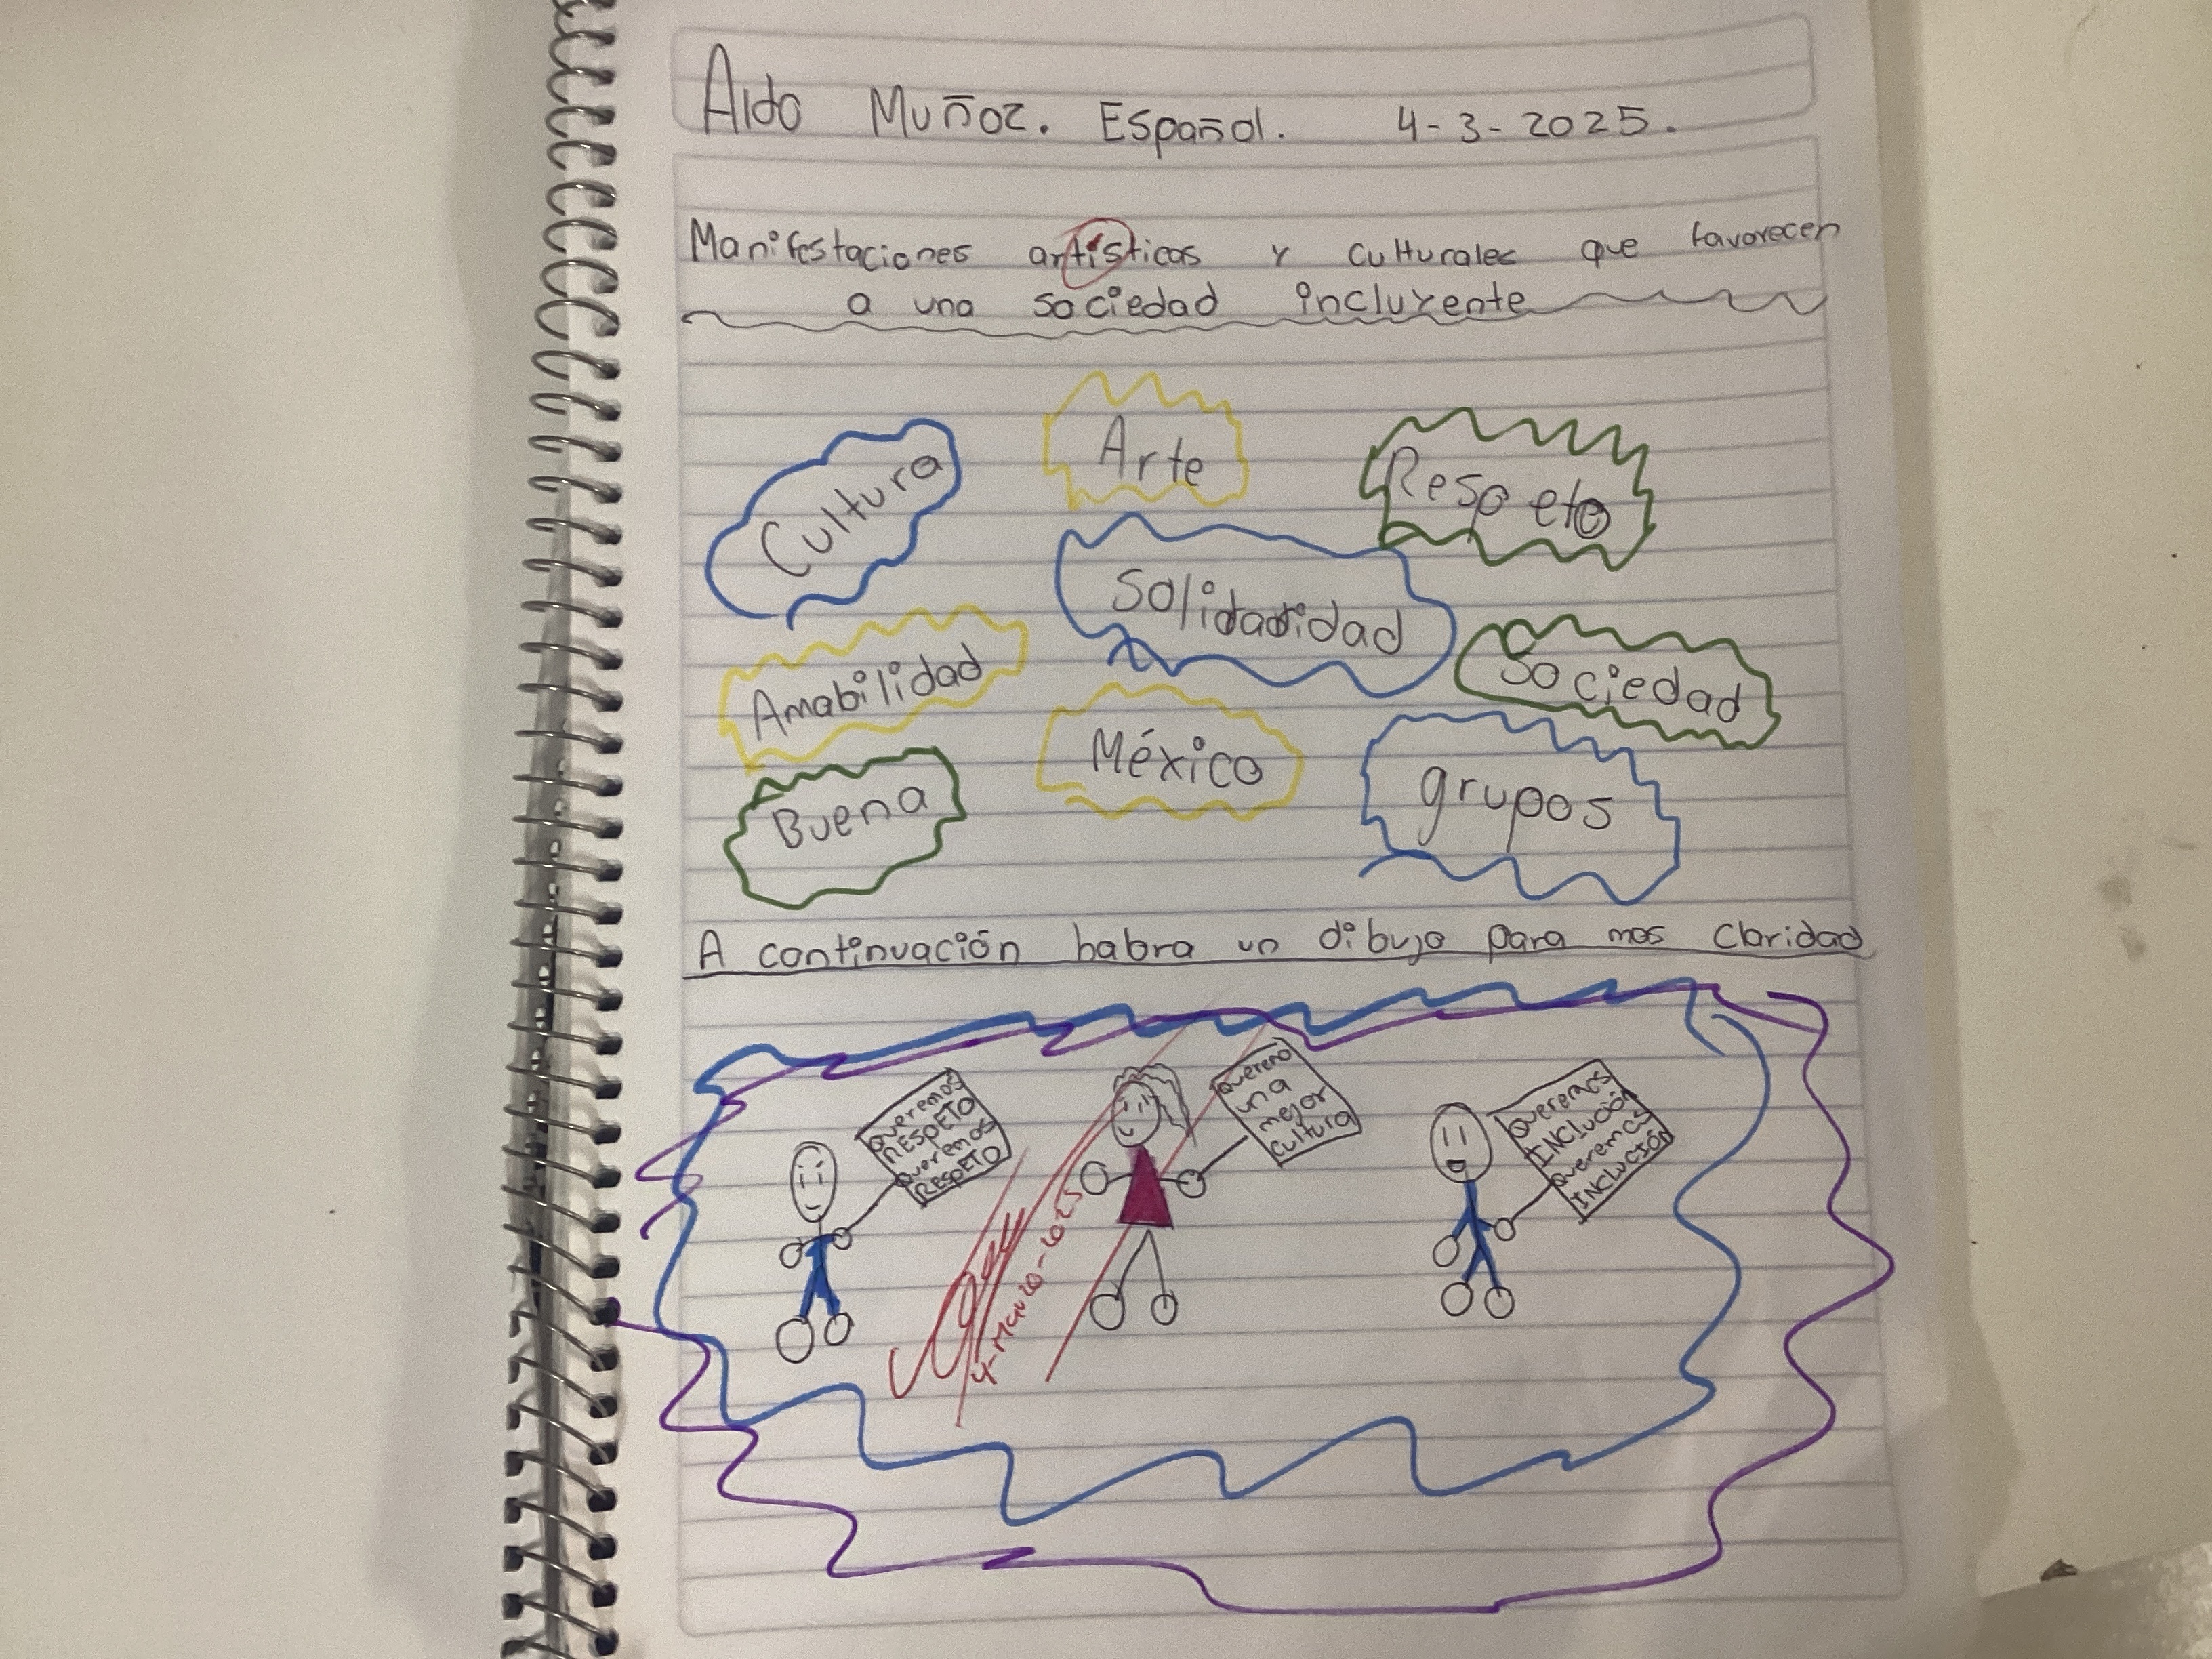 Aldo Muñoz. Español. 4-3-2025.
Manifestaciones artísticas y culturales que favorecen
a una sociedad incluyente
Cultura
Arte
Respeto
Solidaridad
Amabilidad
Sociedad
México
Buena
grupos
A continuación habra un dibujo para mas claridad
Queremos
RESPETO
Queremos
RESPETO
Queremo
una
mejor
cultura
Queremos
INCLUCIÓN
Queremos
INCLUCIÓN
4-Marzo-2025